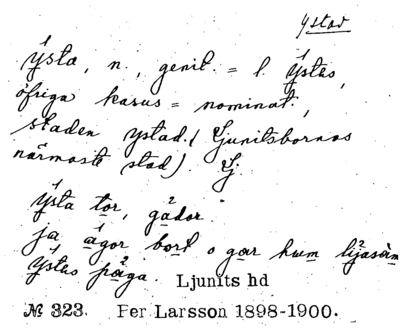 Ystad
Ysta, n., genit. = l. Ystas,
öfriga kasus = nominat.,
staden Ystad. (Ljunitsbornas
närmaste stad). Lj
Ysta tor, gådor.
ja ågor bort o gar hum ljasåm
Ystas påga.
Ljunits hd
№ 323. Per Larsson 1898-1900.